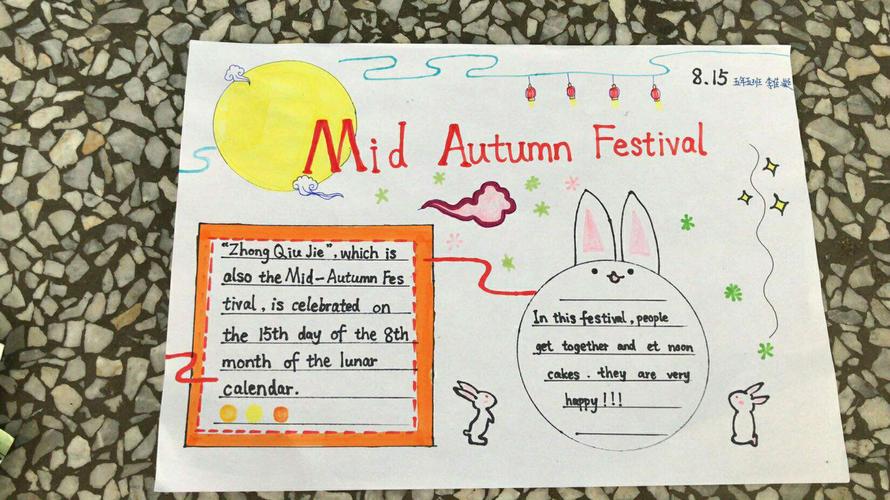 8.15 五年五班 李佳
Mid Autumn Festival
"Zhong Qiu Jie", which is
also the Mid-Autumn Fes
tival, is celebrated on
the 15th day of the 8th
month of the lunar
calendar.
In this festival, people
get together and et noon
cakes. they are very
happy!!!